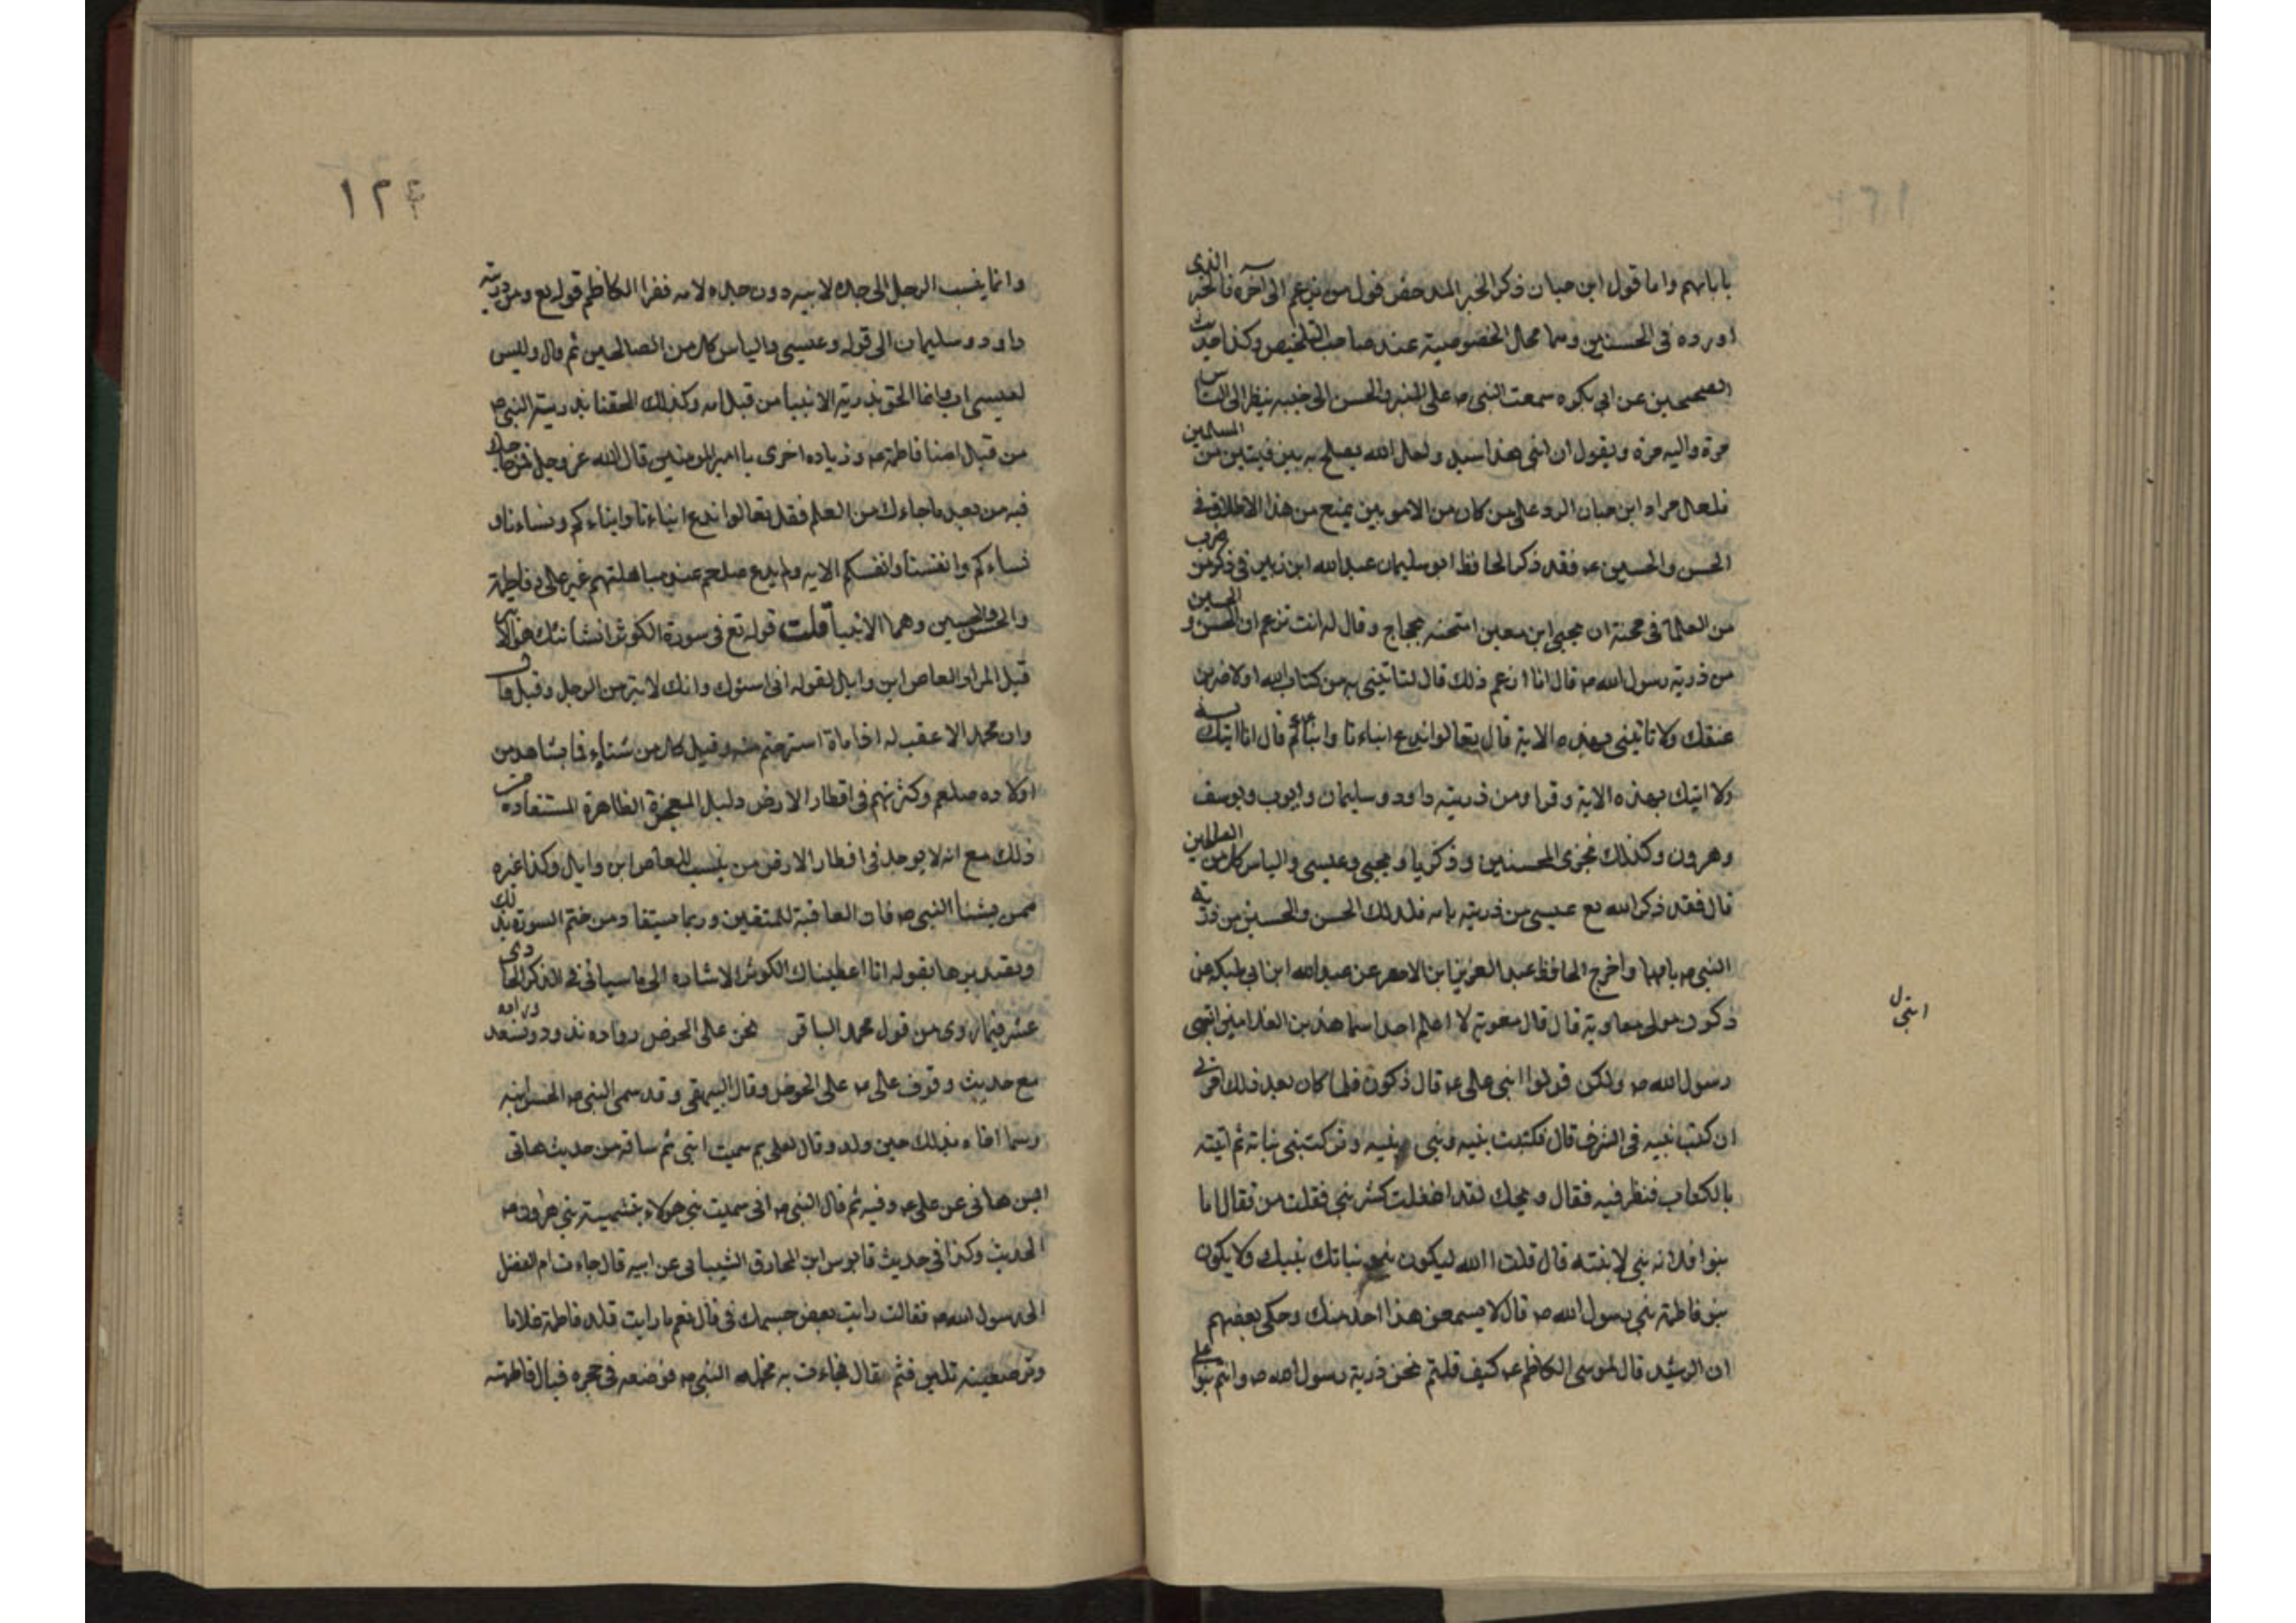 بابائهم واما قول ابن حبان ذكر الخبر المدحض قول من زعم الى آخره فالخبر الذى
اورده فى الحسنين وهما محال الخصوصية عند صاحب التلخيص وكذا حديث
الصحيحين عن ابى بكره سمعت النبى ص على المنبر والحسن الى جنبه ينظر الى الناس
مرة واليه مرة ويقول ان ابنى هذا سيد ولعل الله يصلح به بين فيتين من المسلمين
فلعل مراد ابن حبان الرد على من كان من الامويين يمنع من هذا الاطلاق فى
الحسن والحسين ع فقد ذكر الحافظ ابو سليمان عبد الله ابن زبين فى ذكر من ضرب
من العلما فى محنة ان يحيى ابن معين امتحنه حجاج وقال له انت تزعم ان الحسن و الحسين
من ذرية رسول الله ص قال انا ازعم ذلك قال لتاتينى به من كتاب الله او لاضربن
عنقك ولا تاتينى بهذه الاية قال تعالوا ندع ابناءنا وابنائكم قال انا اتيك
ولا اتيك بهذه الاية وقرا ومن ذريته داود وسليمان وايوب ويوسف
وهرون وكذلك نجزى المحسنين وذكريا ويحيى وعيسى والياس كل من الصالحين
قال فقد ذكر الله تع عيسى من ذريته بامه فلذلك الحسن والحسين من ذرية
النبى ص بامهما واخرج الحافظ عبد العزيز ابن الاحضر عن عبد الله ابن ابى مليكه عن
ذكون مولى معاوية قال قال معوية لا اعلم احدا سما هذين الغلامين ابنى
ابنى ل
رسول الله ص ولكن قولوا ابنى على ع قال ذكون فلما كان بعد ذلك امرنى
ان كتب بنيه فى الشرف قال فكتبت بنيه وبنى بنيه وتركت بنى بناته ثم اتيته
بالكتاب فنظر فيه فقال ويحك لقد اغفلت كثر بنى فقلت من فقال اما
بنوا فلانه بنى لابنته قال قلت الله ليكون بنو بناتك بنيك ولا يكون
بنو فاطمة بنى رسول الله ص قال لا يسمعن هذا احد منك وحكى بعضهم
ان الرشيد قال لموسى الكاظم ع كيف قلتم نحن ذرية رسول الله ص وانتم بنوا على
١٢٤
وانما ينسب الرجل الى جده لابيه دون جده لامه فقرا الكاظم قوله تع ومن ذريته
داود وسليمان الى قوله وعيسى والياس كل من الصالحين ثم قال وليس
لعيسى اب وانما الحق بذرية الانبيا من قبل امه وكذلك الحقنا بذرية النبى ص
من قبل امنا فاطمة ع وزياده اخرى يا امير المومنين قال الله عز وجل فمن حاجك
فيه من بعد ما جاءك من العلم فقل تعالوا ندع ابناءنا وابناءكم ونساءنا و
نساءكم وانفسنا وانفسكم الاية ولم يدع صلعم عند مباهلتهم غير على وفاطمة
والحسن والحسين وهما الابنيا قلت قوله تع فى سورة الكوثر ان شانئك هو الابتر
قيل المراد العاص ابن وايل لقوله انى اسئوك وانك لابتر من الرجل وقيل قال
وان محمدا لا عقب له اذا مات استرحتم منه وقيل كل من شنايه فما يشاهد من
اولاده صلعم وكثرتهم فى اقطار الارض دليل المعجزة الظاهرة المستفادة من
ذلك مع انه لا يوجد فى اقطار الارض من ينسب للعاص ابن وايل وكذا غيره
ممن يشنا النبى ص فان العاقبة للمتقين وربما يستفاد من ختم السورة بذلك
وتصديرها بقوله انا اعطيناك الكوثر الاشاده الى ما سياتى فى الذكر الحادى
عشر فيما روى من قول محمد الباقر نحن على الحوض رواده نذود ونسعد وراده
مع حديث وقوف على ع على الحوض وقال البيهقى وقد سمى النبى ص الحسن ابنه
رسما اخاه بذلك حين ولد وقال لعلى بم سميت ابنى ثم ساقه من حديث هانى
ابن هانى عن على ع وفيه ثم قال النبى ص انى سميت بنى هولاء بتسمية بنى هارون ع
الحديث وكذا فى حديث قابوس ابن المخارق الشيبانى عن ابيه قال جاءت ام الفضل
الى رسول الله ص فقالت رايت بعض جسمك فى قال نعم ما رايت تلد فاطمة غلاما
وترضعينه بلبن قثم فقال فجاءت به تحمله النبى ص فوضعه فى حجره فبال فاطمته